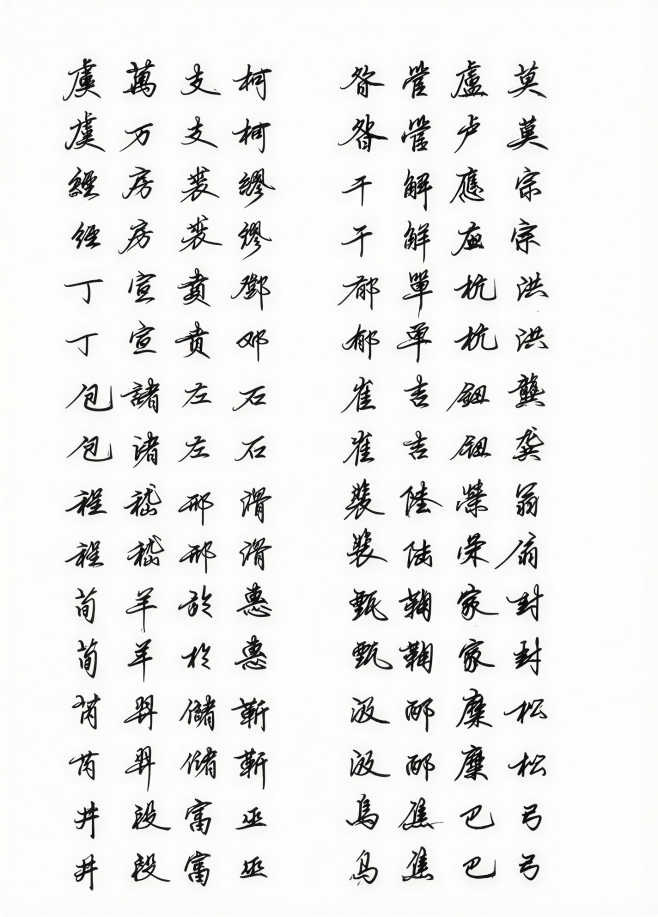 虞萬支柯 昝管盧莫
虞万支柯 昝管卢莫
經房裘繆 干解應宗
经房裘缪 干解应宗
丁宣賁鄧 郁單杭洪
丁宣贲邓 郁单杭洪
包諸左石 崔吉鈕龔
包诸左石 崔吉钮龚
程嵇邢滑 裴陸榮翁
程嵇邢滑 裴陆荣翁
荀羊於惠 甄鞠家封
荀羊於惠 甄鞠家封
芮羿儲靳 汲邴糜松
芮羿储靳 汲邴糜松
井段富巫 烏焦巴弓
井段富巫 乌焦巴弓